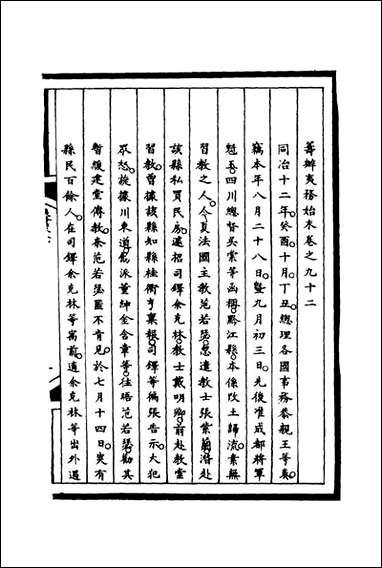 籌辦夷務始末卷之九十二
同治十二年癸酉十月丁丑總理各國事務恭親王等奏
竊本年八月二十八日暨九月初三日先後准成都將軍
魁玉四川總督吳棠等函稱黔江縣本係改土歸流素無
習教之人今夏法國主教范若瑟忽遣教士張紫蘭潛赴
該縣私買民房遽招司鐸余克林教士戴明卿前赴教堂
習教曾據該縣知縣桂衢亨稟報司鐸等徧張告示大犯
眾怒旋據川東道飭派董紳金含章等往晤范若瑟勸其
暫緩建堂傳教奈范若瑟匿不肯見於七月十四日突有
縣民百餘人在司鐸余克林等寓前適余克林等出外遇